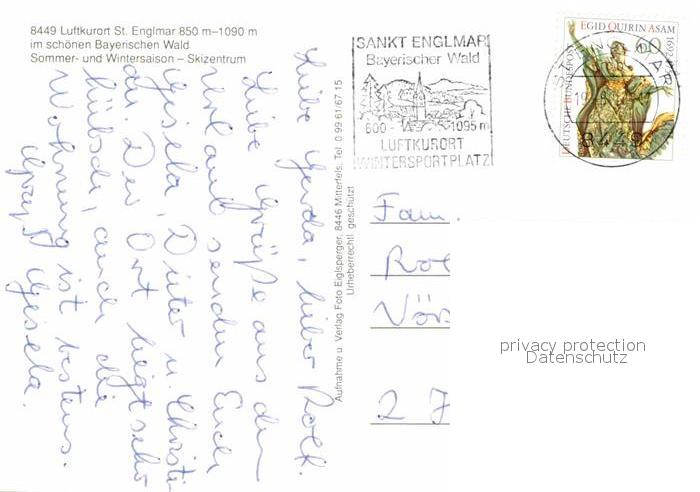 8449 Luftkurort St. Englmar 850 m–1090 m
im schönen Bayerischen Wald
Sommer- und Wintersaison – Skizentrum
Liebe Gerda, lieber Rolf.
Liebe Grüße aus dem
Urlaub senden Euch
Gisela, Dieter u. Christi
Der Ort liegt sehr
hübsch, auch die
Wohnung ist bestens.
Gruß Gisela.
Aufnahme u. Verlag Foto Eiglsperger, 8446 Mitterfels, Tel. 0 99 61/67 15
Urheberrechtl. geschützt
SANKT ENGLMAR
Bayerischer Wald
800 - 1095 m
LUFTKURORT
WINTERSPORTPLATZ
EGID QUIRIN ASAM
DEUTSCHE BUNDESPOST
60
8449
Fam.
Rol
Vörs
2 7
privacy protection
Datenschutz